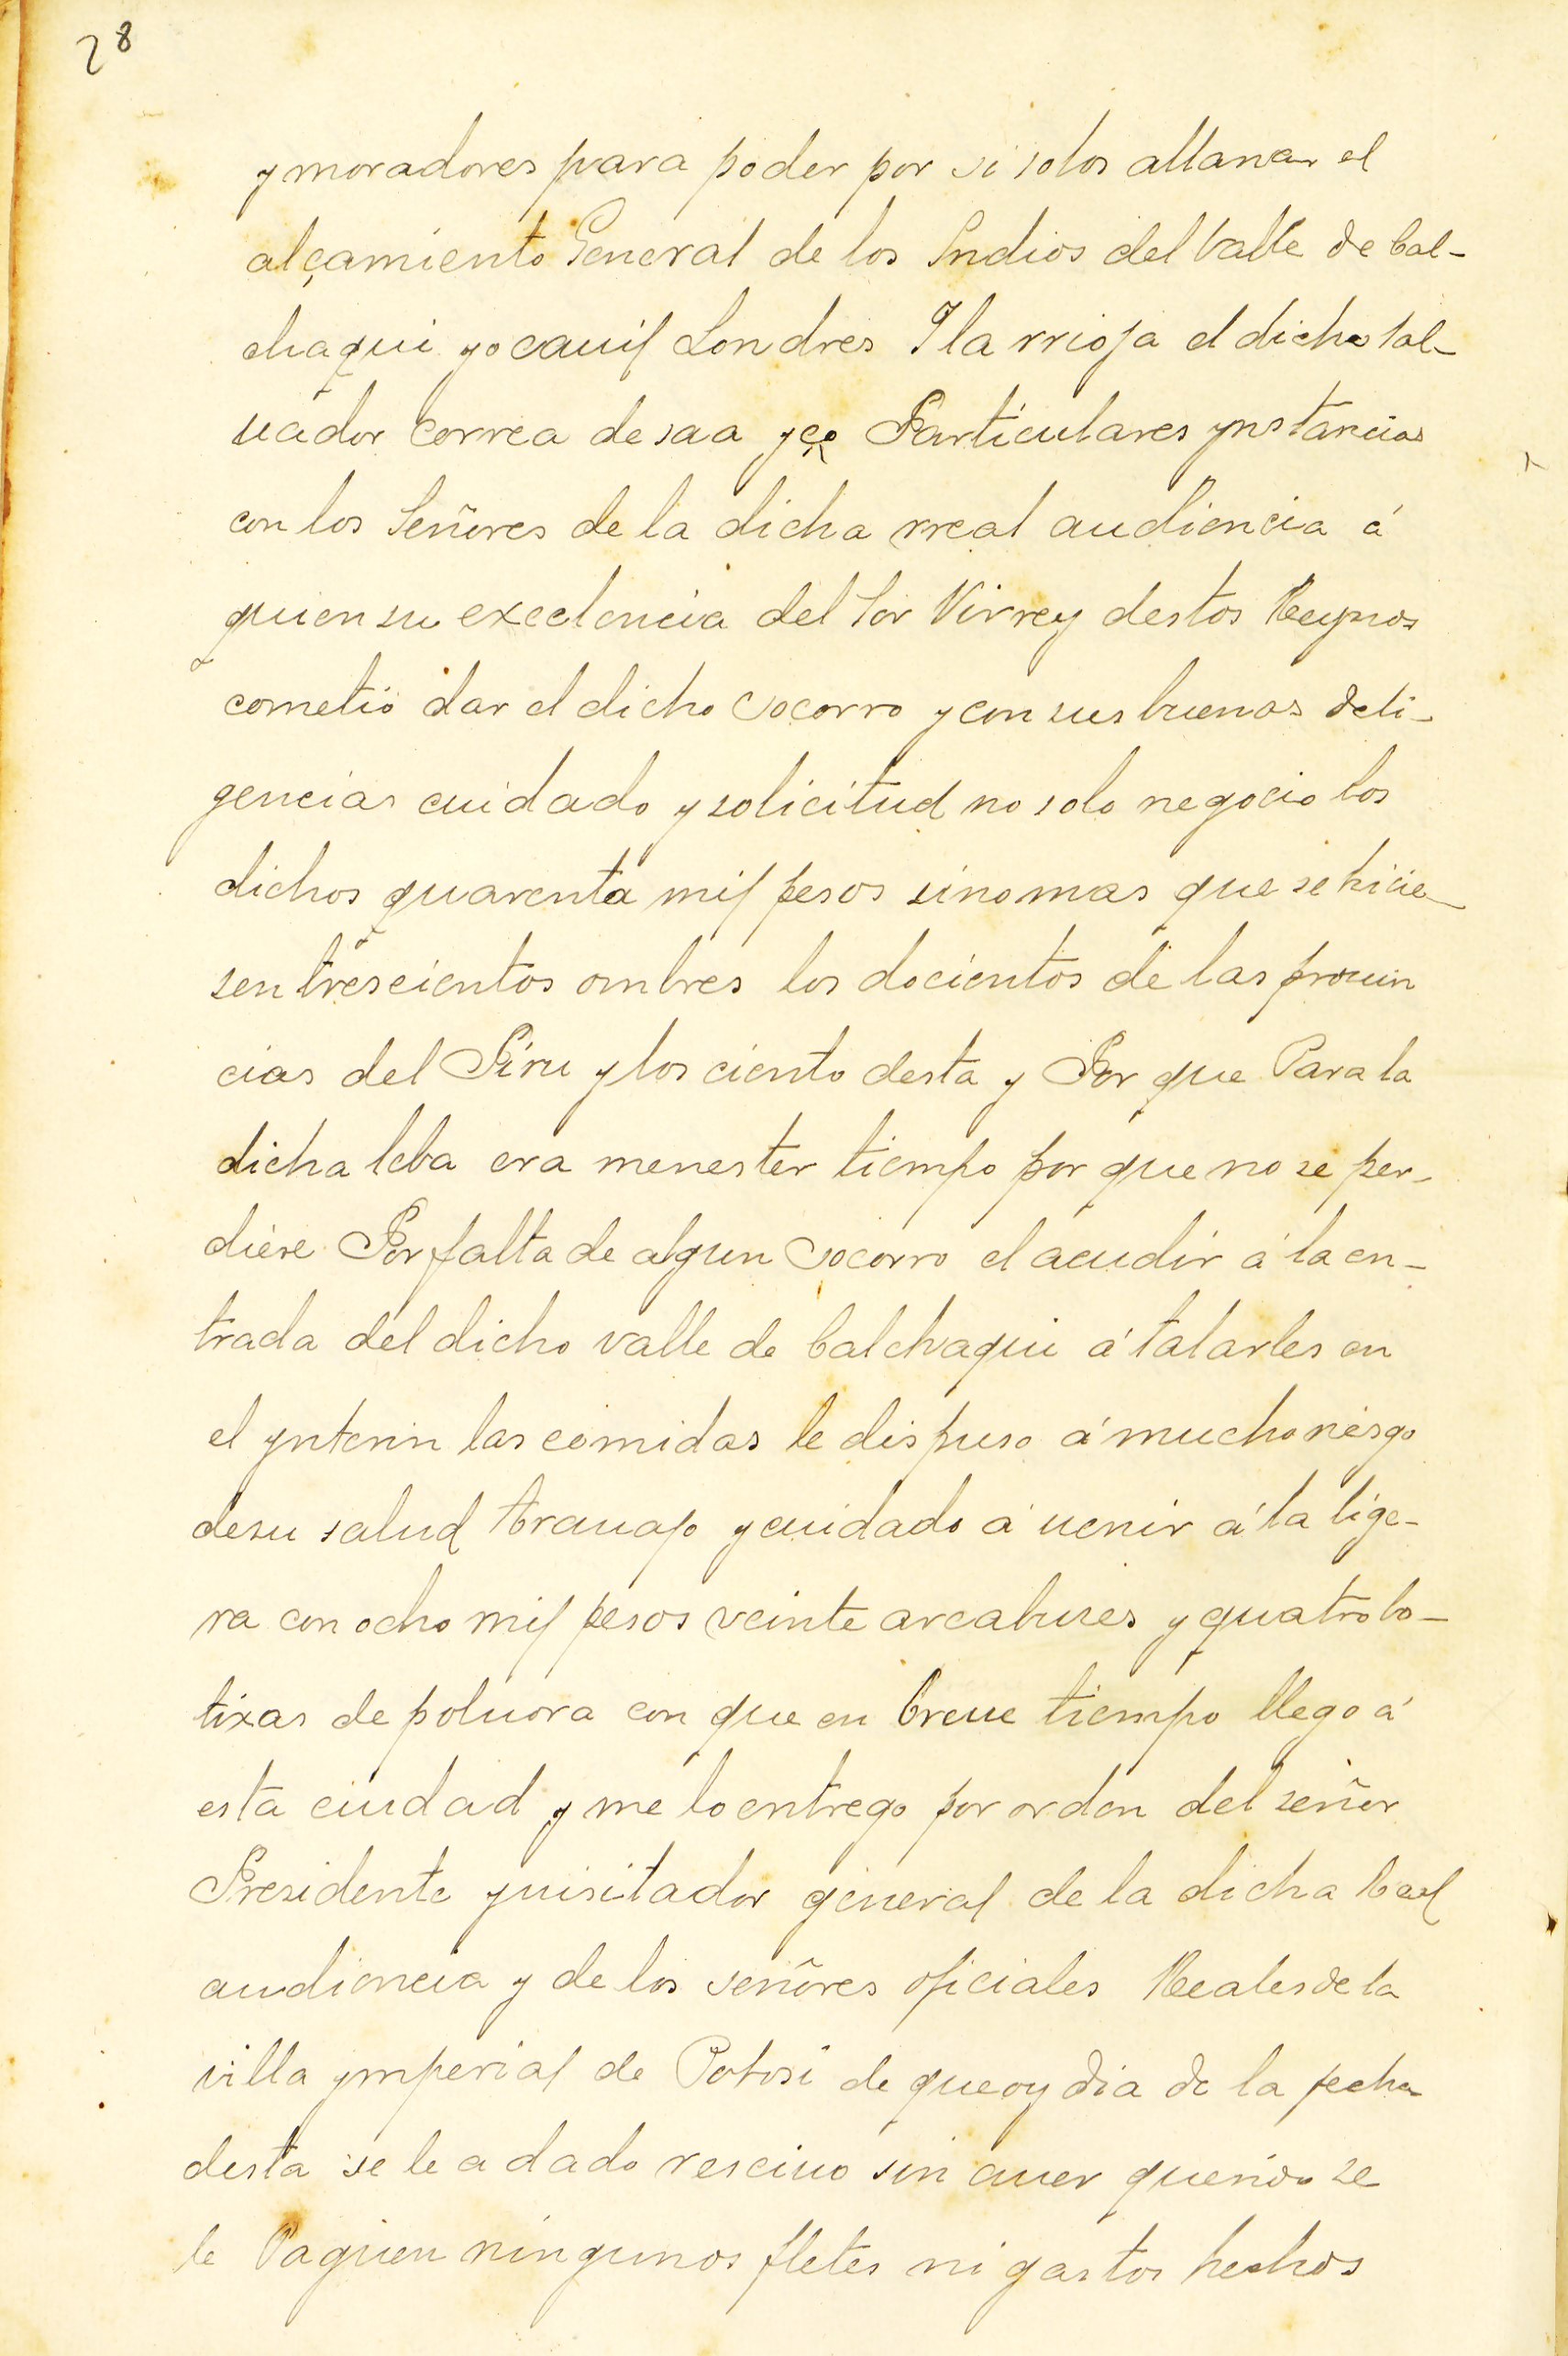 28
y moradores para poder por si solos allanar el
alçamiento General de los Indios del Valle de Cal-
chaqui yocauil Londres Y la rrioja el dicho Sal-
uador Correa de saa y ço Particulares ynstancias
con los Señores de la dicha rreal audiencia á
quien su execlencia del Sor Virrey destos Reynos
cometió dar el dicho socorro y con sus buenas deli-
gencias cuidado y solicitud no solo negocio los
dichos quarenta mil pesos sino mas que se hicie-
sen trescientos ombres los docientos de las prouin
cias del Piru y los ciento desta y Por que Para la
dicha leba era menester tiempo por que no se per-
diese Por falta de algun socorro el acudir á la en-
trada del dicho valle de Calchaqui á talarles en
el ynterin las comidas le dispuso á mucho riesgo
de su salud trauajo y cuidado á uenir á la lige-
ra con ocho mil pesos veinte arcabuses y quatro bo-
tixas de poluora con que en breue tiempo llego á
esta ciudad y me lo entrego por orden del señor
Presidente y uisitador general de la dicha Real
audiencia y de los señores oficiales Reales de la
villa ymperial de Potosi de que oy dia de la fecha
desta se le a dadoresciuo sin auer querido se
le Paguen ningunos fletes ni gastos hechos